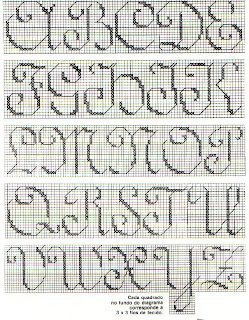 A B C D E
F G H I J K
L M N O P
Q R S T U
V W X Y Z
Cada quadrado
no fundo do diagrama
corresponde a
3 x 3 fios de tecido.